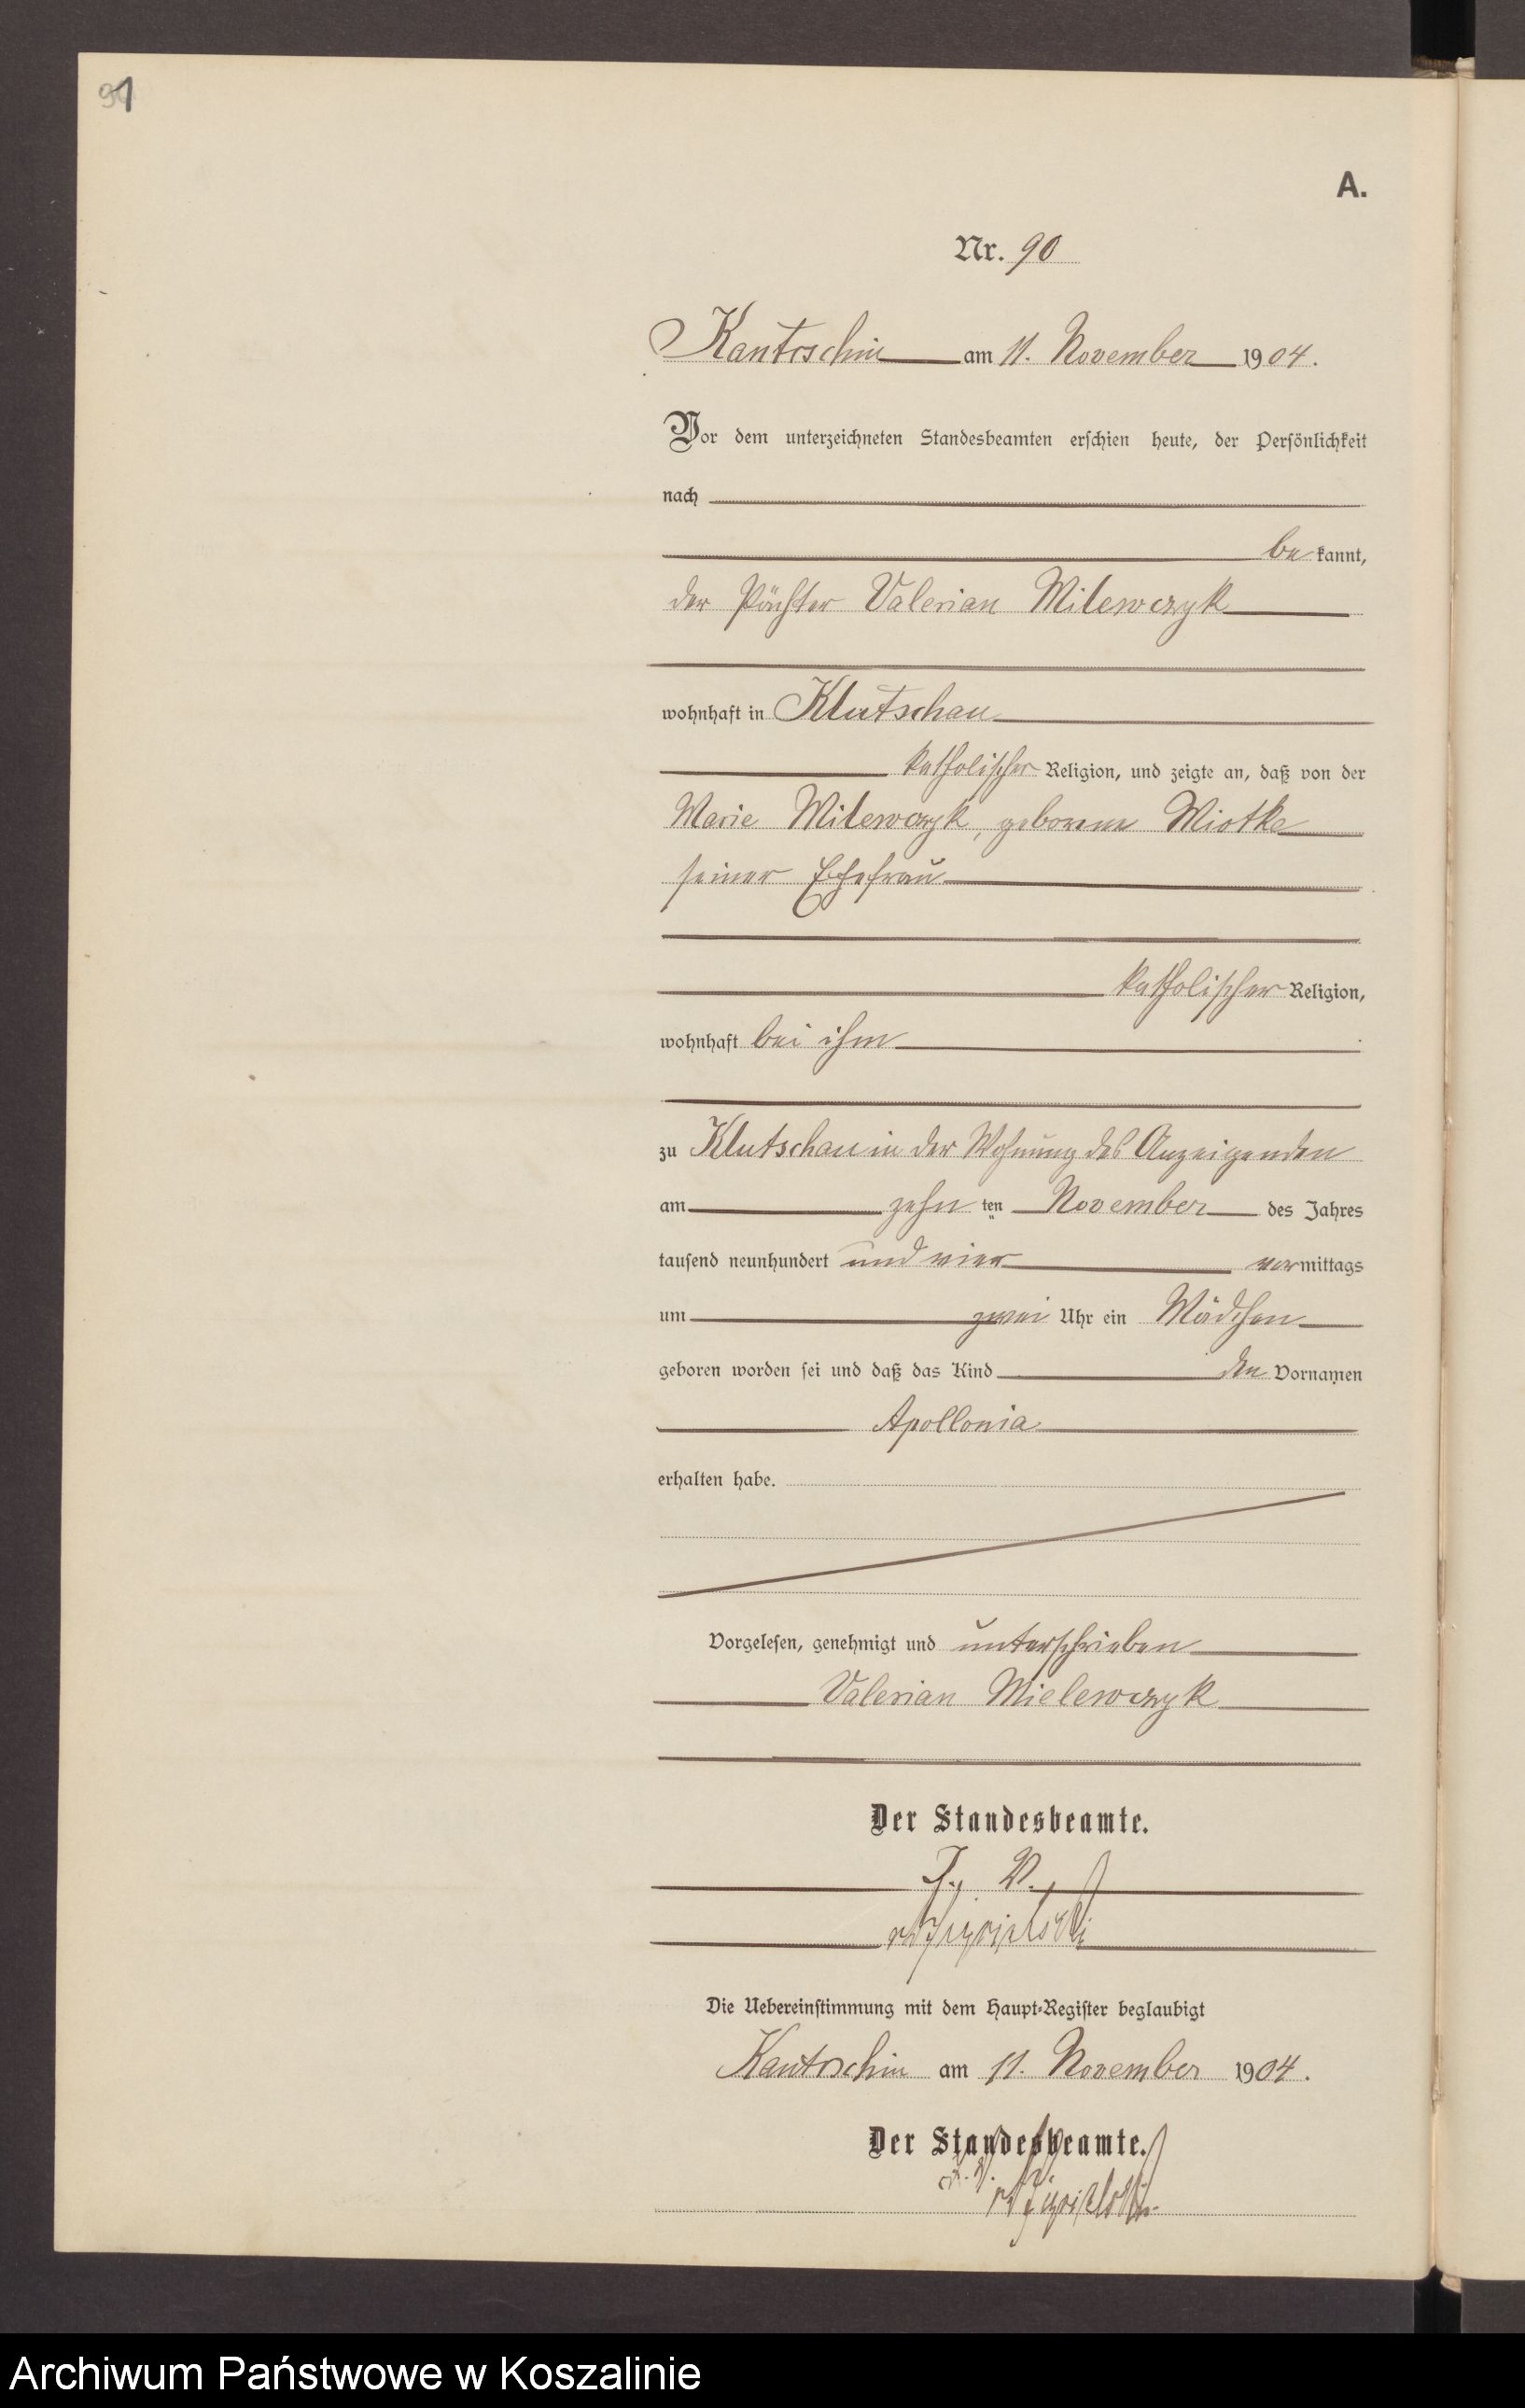 91
A.
Nr. 90
Kantrschin am 11. November 1904.
Vor dem unterzeichneten Standesbeamten erschien heute, der Persönlichkeit
nach
bekannt,
der Pächter Valerian Milewczyk
wohnhaft in Klutschau
katholischer Religion, und zeigte an, daß von der
Marie Milewczyk, geborene Miotke
seiner Ehefrau
katholischer Religion,
wohnhaft bei ihm
zu Klutschau in der Wohnung des Anzeigenden
am zehn ten November des Jahres
tausend neunhundert und vier vormittags
um zwei Uhr ein Mädchen
geboren worden sei und daß das Kind den Vornamen
Apollonia
erhalten habe.
Vorgelesen, genehmigt und unterschrieben
Valerian Mielewczyk
Der Standesbeamte.
J. V.
Die Uebereinstimmung mit dem Haupt-Register beglaubigt
Kantrschin am 11. November 1904.
Der Standesbeamte.
J. V.
Archiwum Państwowe w Koszalinie